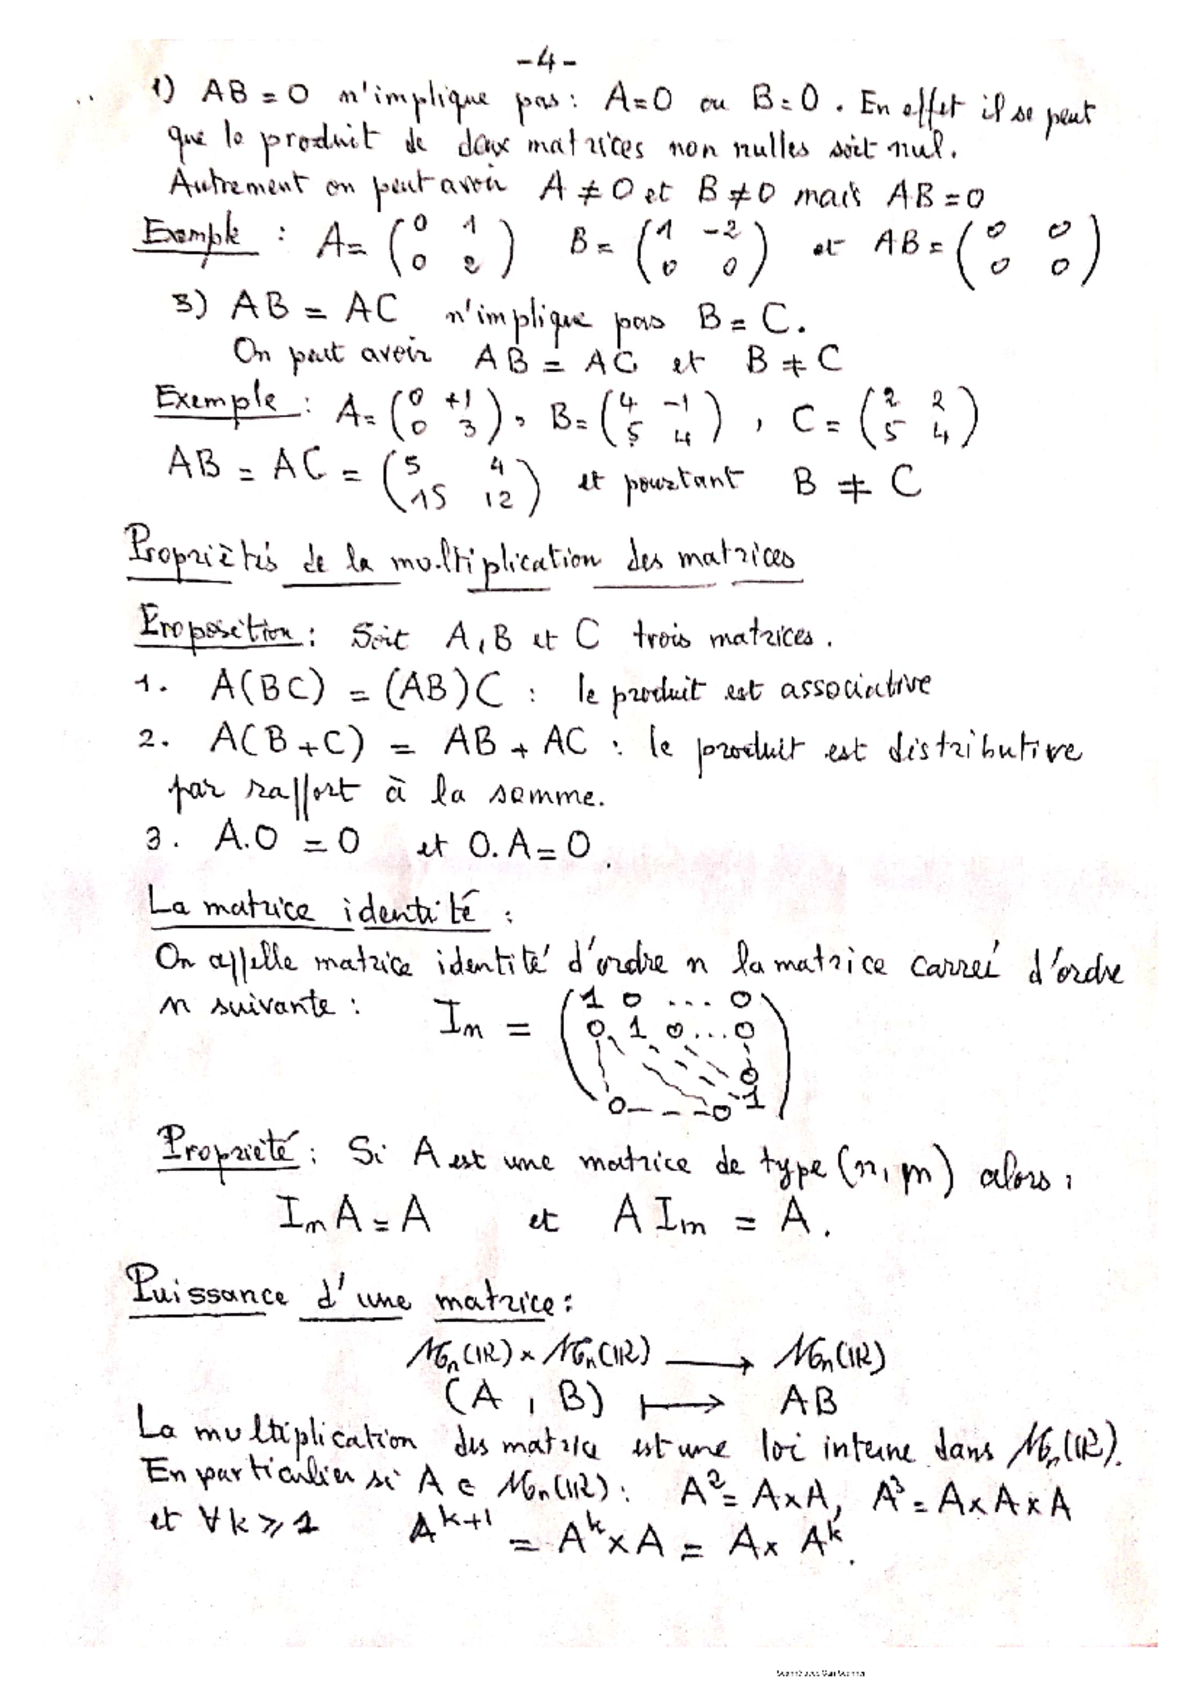 -4-
1) AB = 0 n'implique pas : A=0 ou B=0. En effet il se peut
que le produit de deux matrices non nulles soit nul.
Autrement on peut avoir A ≠ 0 et B ≠ 0 mais AB = 0
Exemple : A = (0 1 / 0 2) B = (1 -2 / 0 0) et AB = (0 0 / 0 0)
3) AB = AC n'implique pas B = C.
On peut avoir AB = AC et B ≠ C
Exemple : A = (0 +1 / 0 3), B = (4 -1 / 5 4), C = (2 2 / 5 4)
AB = AC = (5 4 / 15 12) et pourtant B ≠ C
Propriètés de la multiplication des matrices
Proposition : Soit A, B et C trois matrices.
1. A(BC) = (AB)C : le produit est associative
2. A(B+C) = AB + AC : le produit est distributive
par rapport à la somme.
3. A.0 = 0 et 0.A = 0.
La matrice identité :
On appelle matrice identité d'ordre n la matrice carreé d'ordre
n suivante : In = (1 0 ... 0 / 0 1 0 ... 0 / 0 / 0 - - - 0 1)
Propriété : Si A est une matrice de type (n, m) alors :
In A = A et A Im = A.
Puissance d'une matrice :
Mn(IR) × Mn(IR) ⟶ Mn(IR)
(A , B) ⟼ AB
La multiplication des matrice est une loi interne dans Mn(IR).
En particulier si A ∈ Mn(IR) : A² = A×A, A³ = A×A×A
et ∀ k ≥ 1 A^{k+1} = A^k × A = A × A^k.